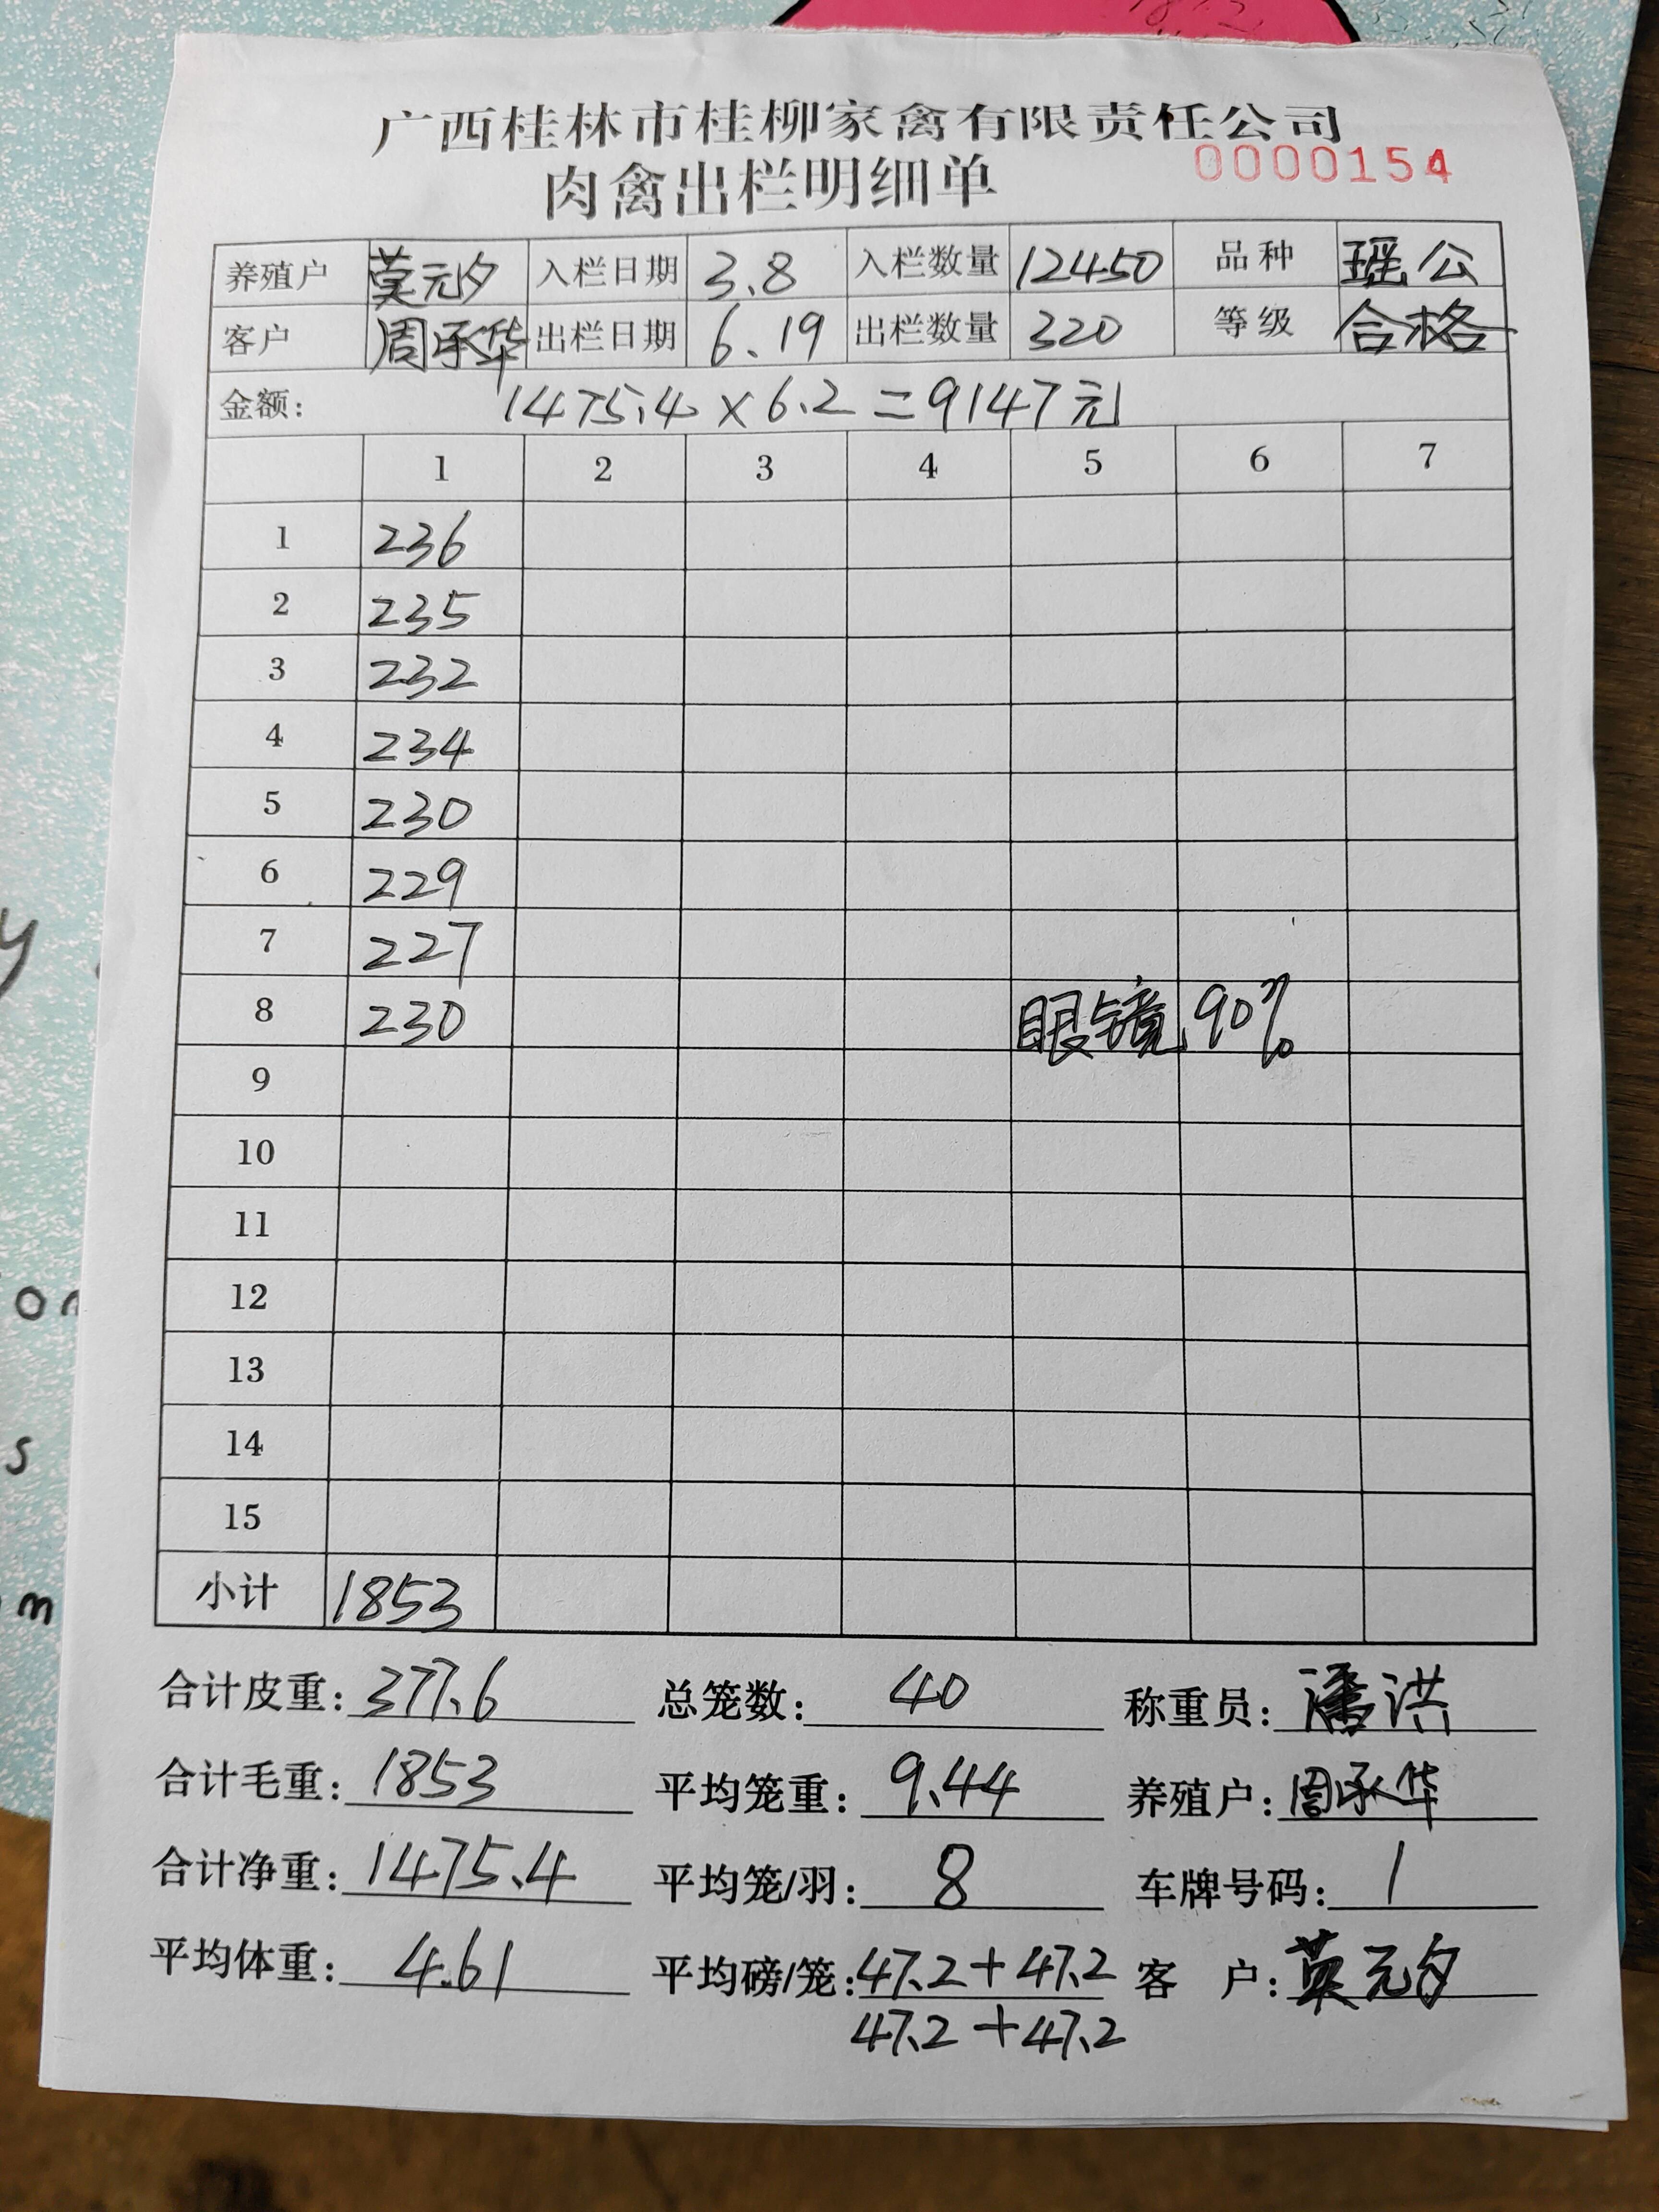 广西桂林市桂柳家禽有限责任公司
肉禽出栏明细单 0000154
养殖户 莫元夕 入栏日期 3.8 入栏数量 12450 品种 瑶公
客户 周承华 出栏日期 6.19 出栏数量 320 等级 合格
金额: 1475.4×6.2=9147元
1 2 3 4 5 6 7
1 236
2 235
3 232
4 234
5 230
6 229
7 227
8 230 眼镜 90%
9
10
11
12
13
14
15
小计 1853
合计皮重: 377.6 总笼数: 40 称重员: 潘洪
合计毛重: 1853 平均笼重: 9.44 养殖户: 周承华
合计净重: 1475.4 平均笼/羽: 8 车牌号码: 1
平均体重: 4.61 平均磅/笼: 47.2+47.2 客 户: 莫元夕
47.2+47.2